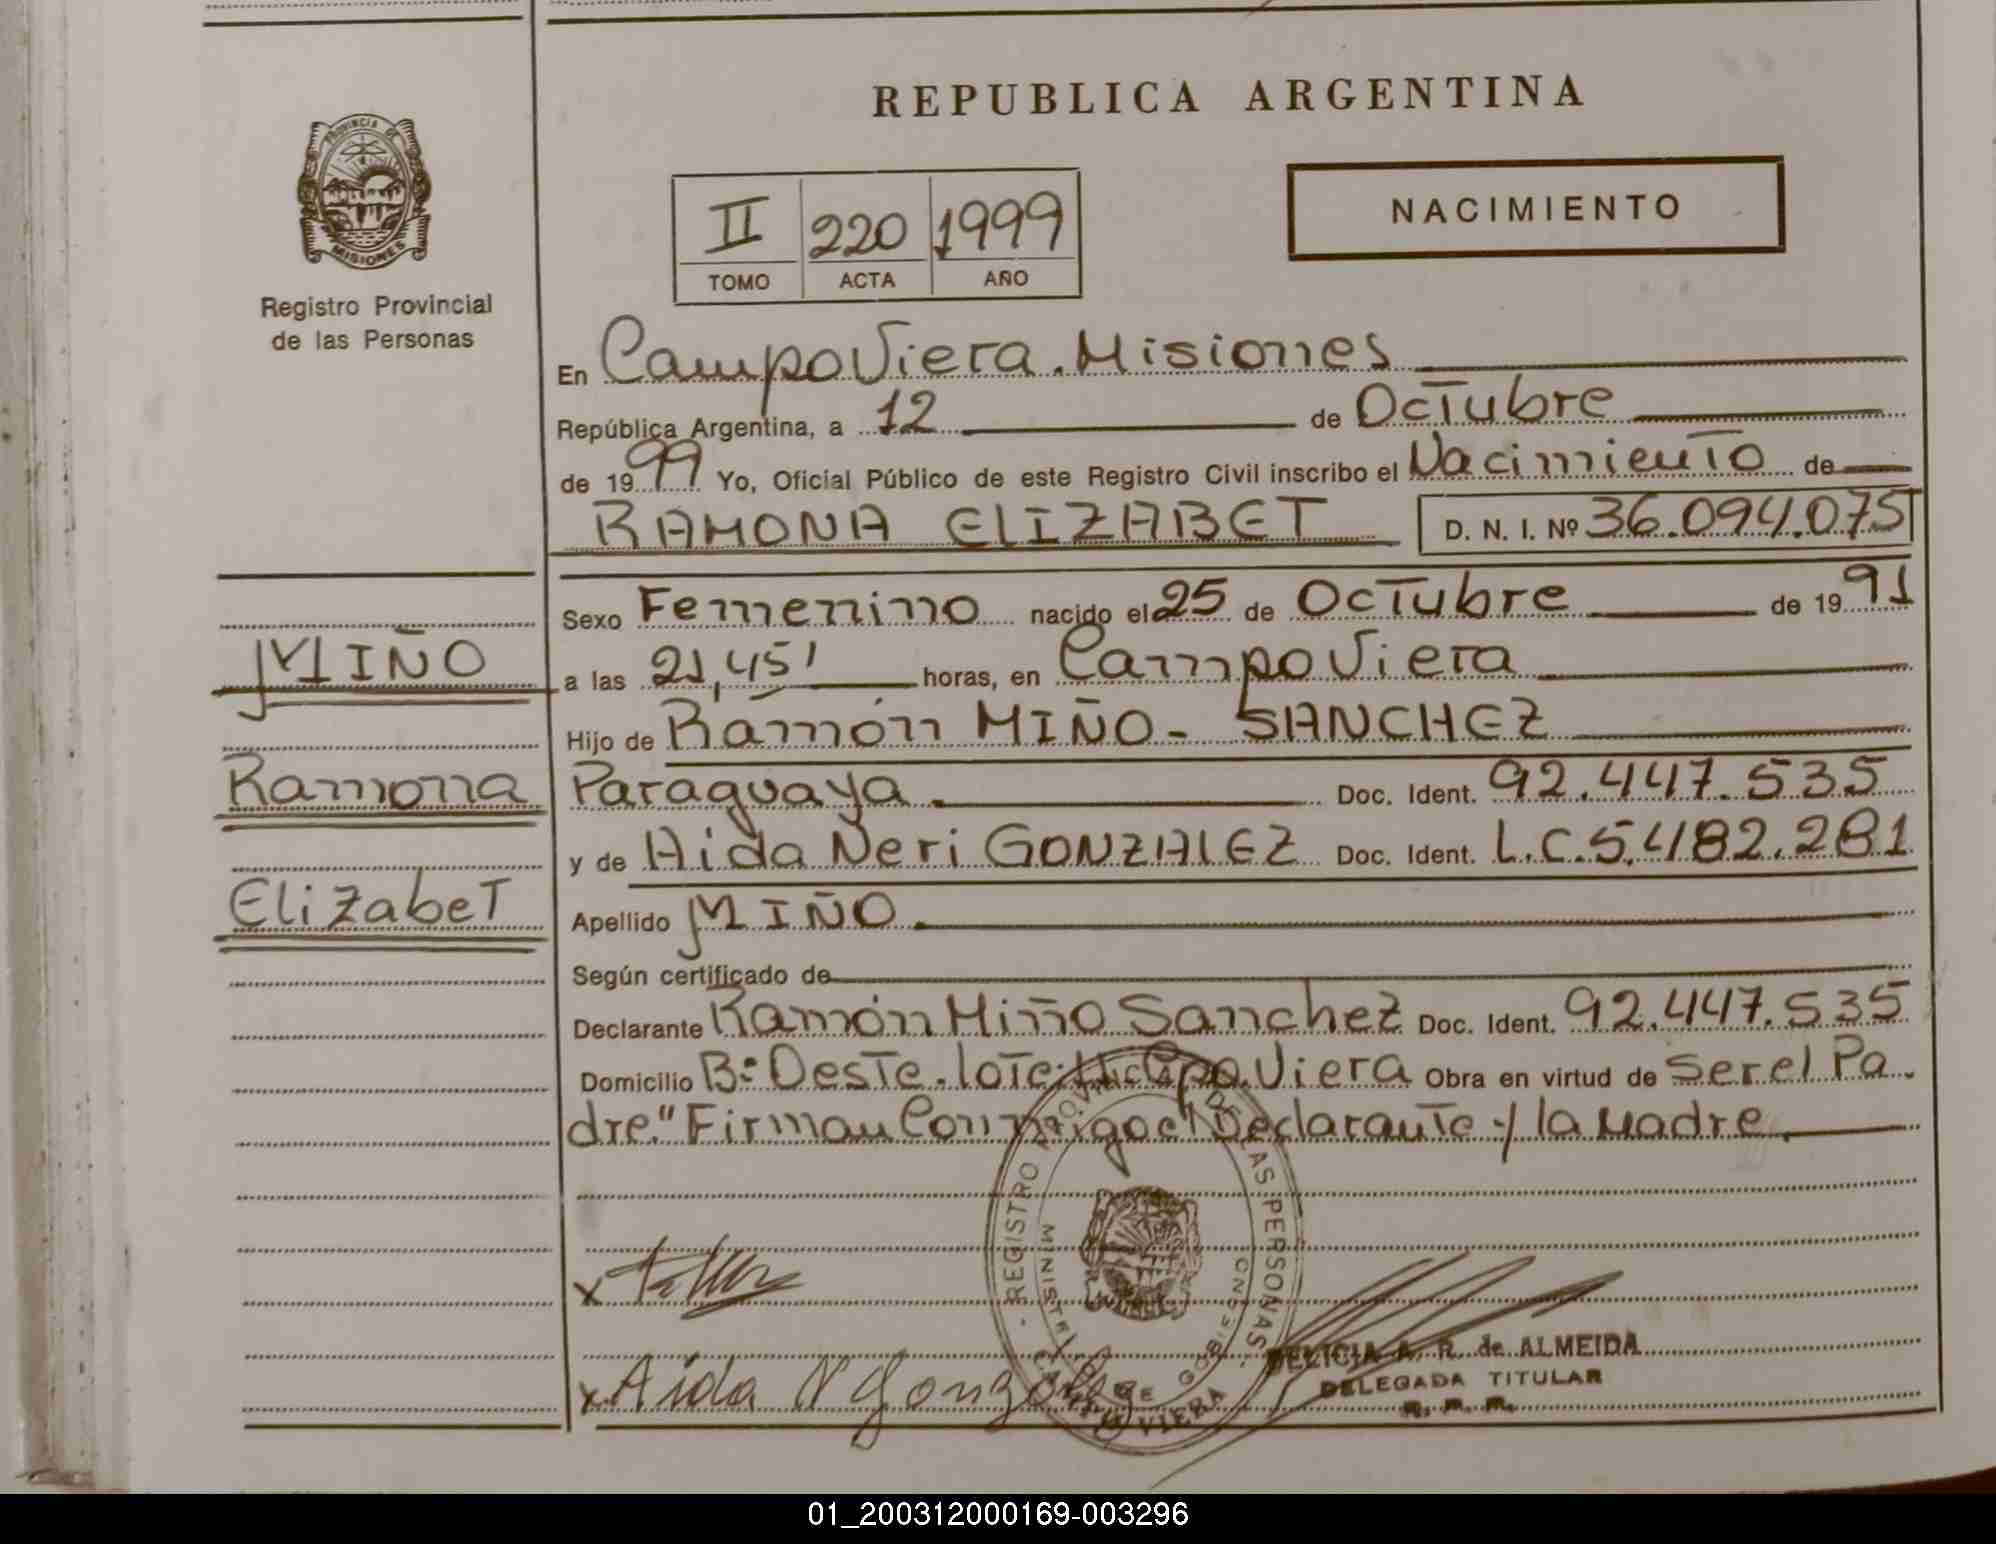 REPUBLICA ARGENTINA
PROVINCIA DE
MISIONES
Registro Provincial
de las Personas
NACIMIENTO
II 220 1999
TOMO ACTA AÑO
En Campo Viera. Misiones
República Argentina, a 12 de Octubre
de 1999 Yo, Oficial Público de este Registro Civil inscribo el Nacimiento de
RAMONA ELIZABET D. N. I. Nº 36.094.075
Sexo Femenino nacido el 25 de Octubre de 1991
MIÑO
a las 21,45' horas, en Campo Viera
Hijo de Ramón MIÑO - SANCHEZ
Ramona
Paraguaya. Doc. Ident. 92.447.535
y de Aida Neri GONZALEZ Doc. Ident. L.C. 5.482.281
Elizabet
Apellido MIÑO.
Según certificado de
Declarante Ramón Miño Sanchez Doc. Ident. 92.447.535
Domicilio Bº Oeste. lote Cpo. Viera Obra en virtud de ser el Pa
dre." Firman Conmigo el Declarante y la Madre.
REGISTRO PROVINCIAL DE LAS PERSONAS
x Aida N Gonzalez
CAMPO VIERA
DELICIA A. R. de ALMEIDA
DELEGADA TITULAR
01_200312000169-003296